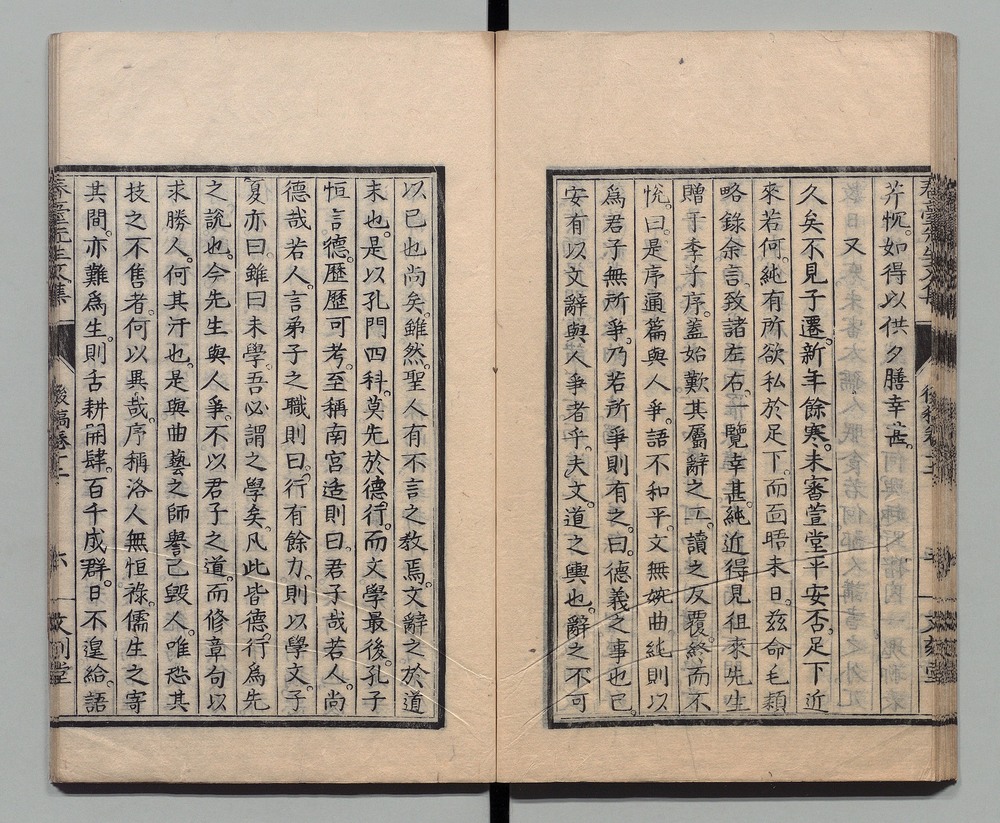 芥怳如得以供夕膳幸甚
又
久矣不見子遷新年餘寒未審萱堂平安否足下近
來若何純有所欲私於足下而面晤未日茲命毛穎
略錄余言致諸左右一覽幸甚純近得見徂來先生
贈于季子序蓋始歎其屬辭之工讀之反覆終而不
悅曰是序通篇與人爭語不和平文無婉曲純則以
爲君子無所爭乃若所爭則有之曰德義之事也已
安有以文辭與人爭者乎夫文道之輿也辭之不可
以已也尚矣雖然聖人有不言之教焉文辭之於道
末也是以孔門四科莫先於德行而文學最後孔子
恒言德歷歷可考至稱南宮适則曰君子哉若人尚
德哉若人言弟子之職則曰行有餘力則以學文子
夏亦曰雖曰未學吾必謂之學矣凡此皆德行爲先
之說也今先生與人爭不以君子之道而修章句以
求勝人何其汙也是與曲藝之師譽己毀人唯恐其
技之不售者何以異哉序稱洛人無恒祿儒生之寄
其間亦難爲生則舌耕開肆百千成群日不遑給語
春臺先生文集
後稿卷十二
六
文刻堂